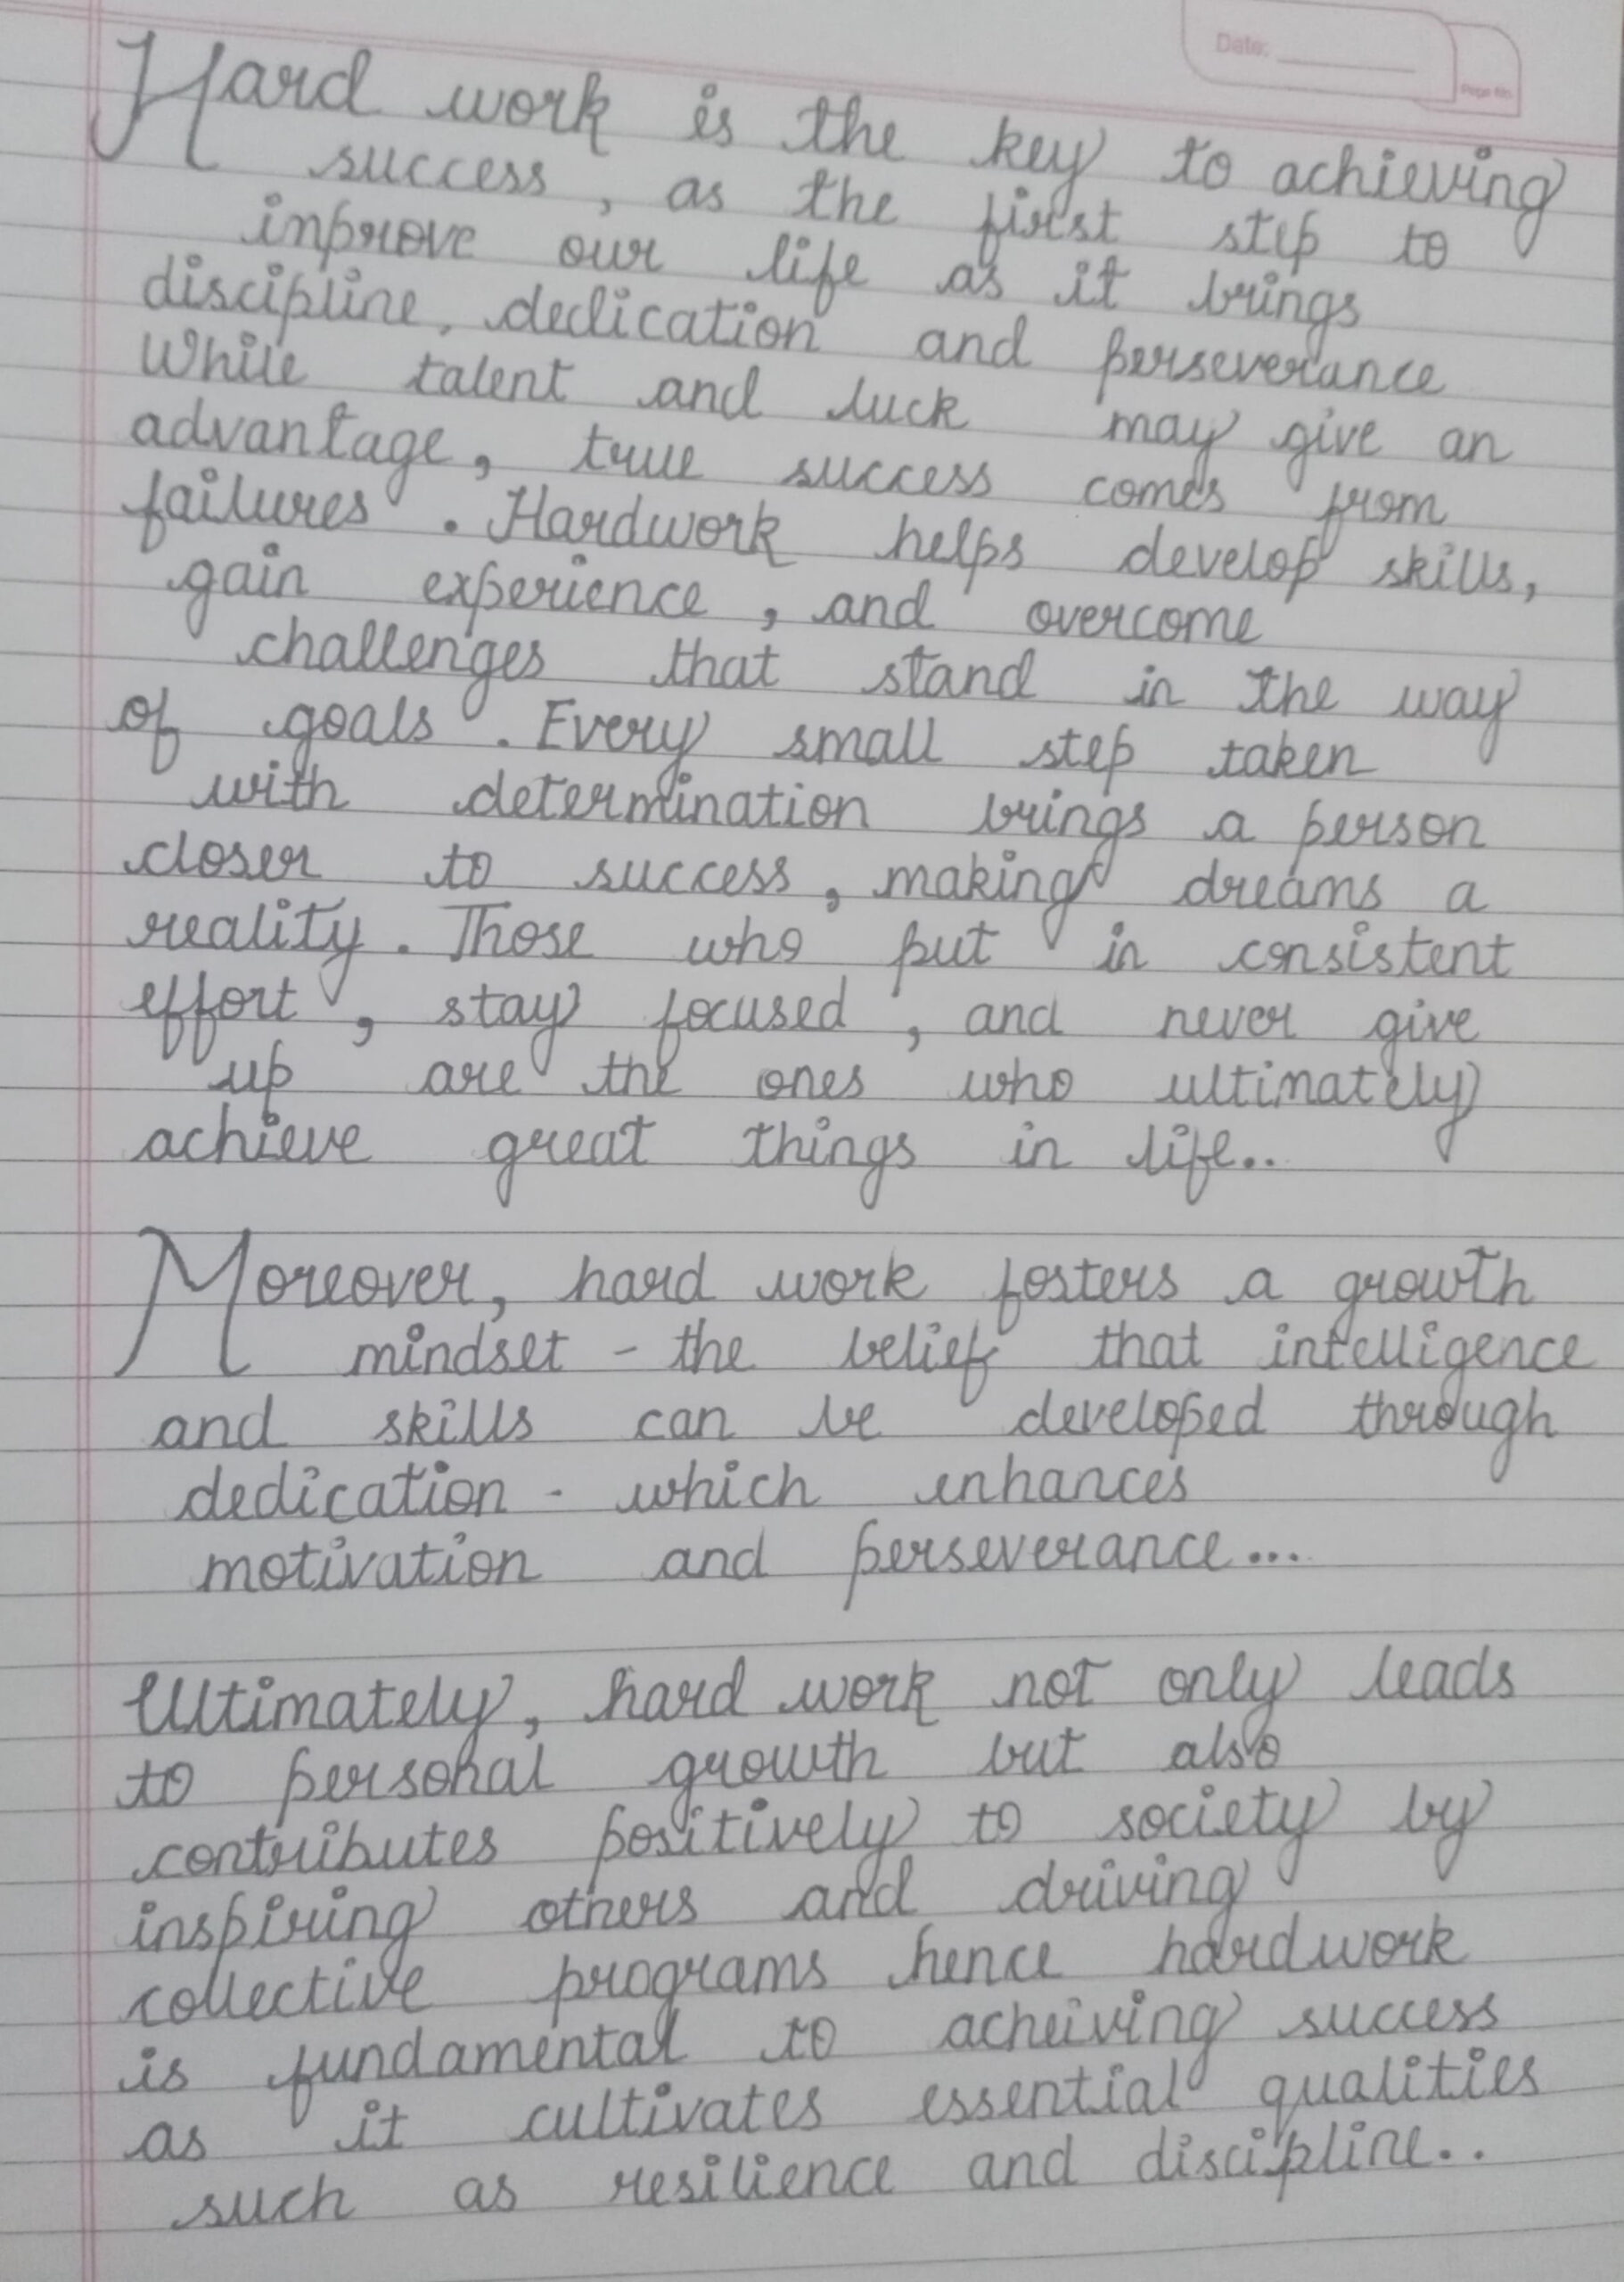 Date:
Page No.
Hard work is the key to achieving
success, as the first step to
inprove our life as it brings
discipline, dedication and perseverance
While talent and luck may give an
advantage, true success comes from
failures. Hardwork helps develop skills,
gain experience, and overcome
challenges that stand in the way
of goals. Every small step taken
with determination brings a person
closer to success, making dreams a
reality. Those who put in consistent
effort, stay focused, and never give
up are the ones who ultimately
achieve great things in life..
Moreover, hard work fosters a growth
mindset - the belief that intelligence
and skills can be developed through
dedication - which enhances
motivation and perseverance...
Ultimately, hard work not only leads
to personal growth but also
contributes positively to society by
inspiring others and driving
collective programs hence hardwork
is fundamental to acheiving success
as it cultivates essential qualities
such as resilience and discipline..